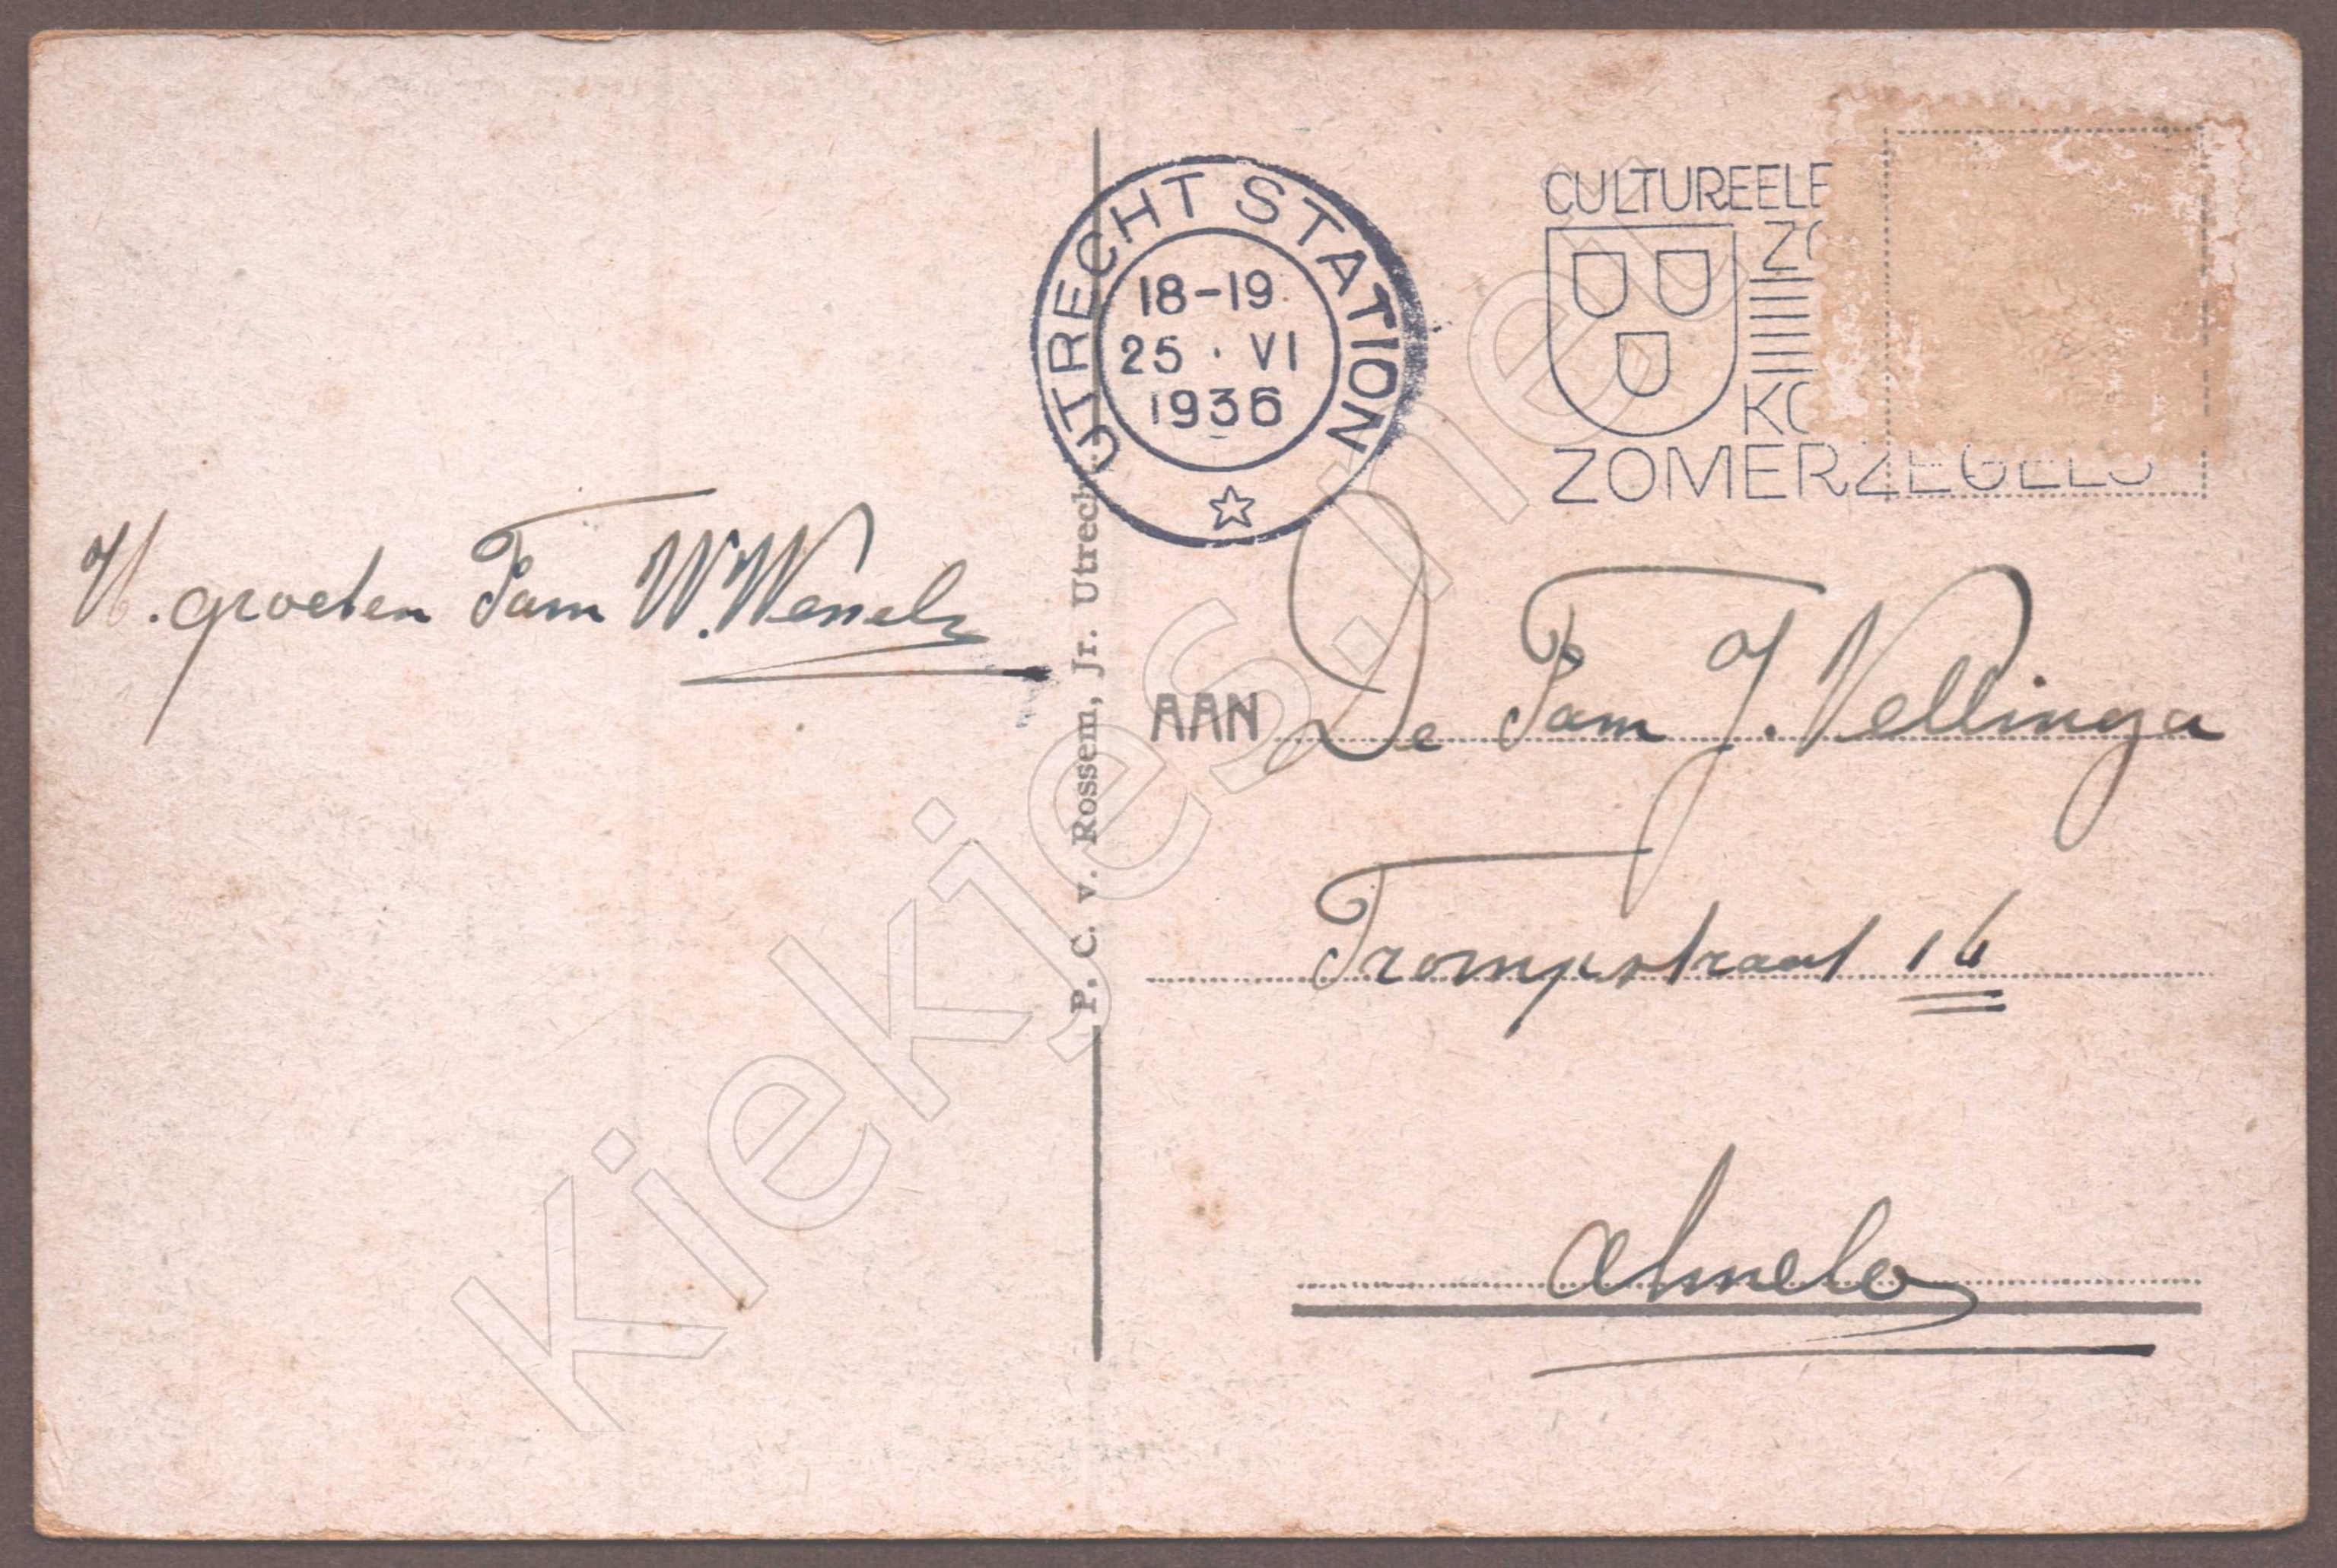 H. groeten Fam W. Wessels
P. C. v. Rossem, Jr. Utrech
UTRECHT STATION
18-19
25 · VI
1936
CULTUREELE
ZO
KO
ZOMERZEGELS
AAN De Fam J. Vellinga
Trompstraat 16
Almelo
Kiekjes.net